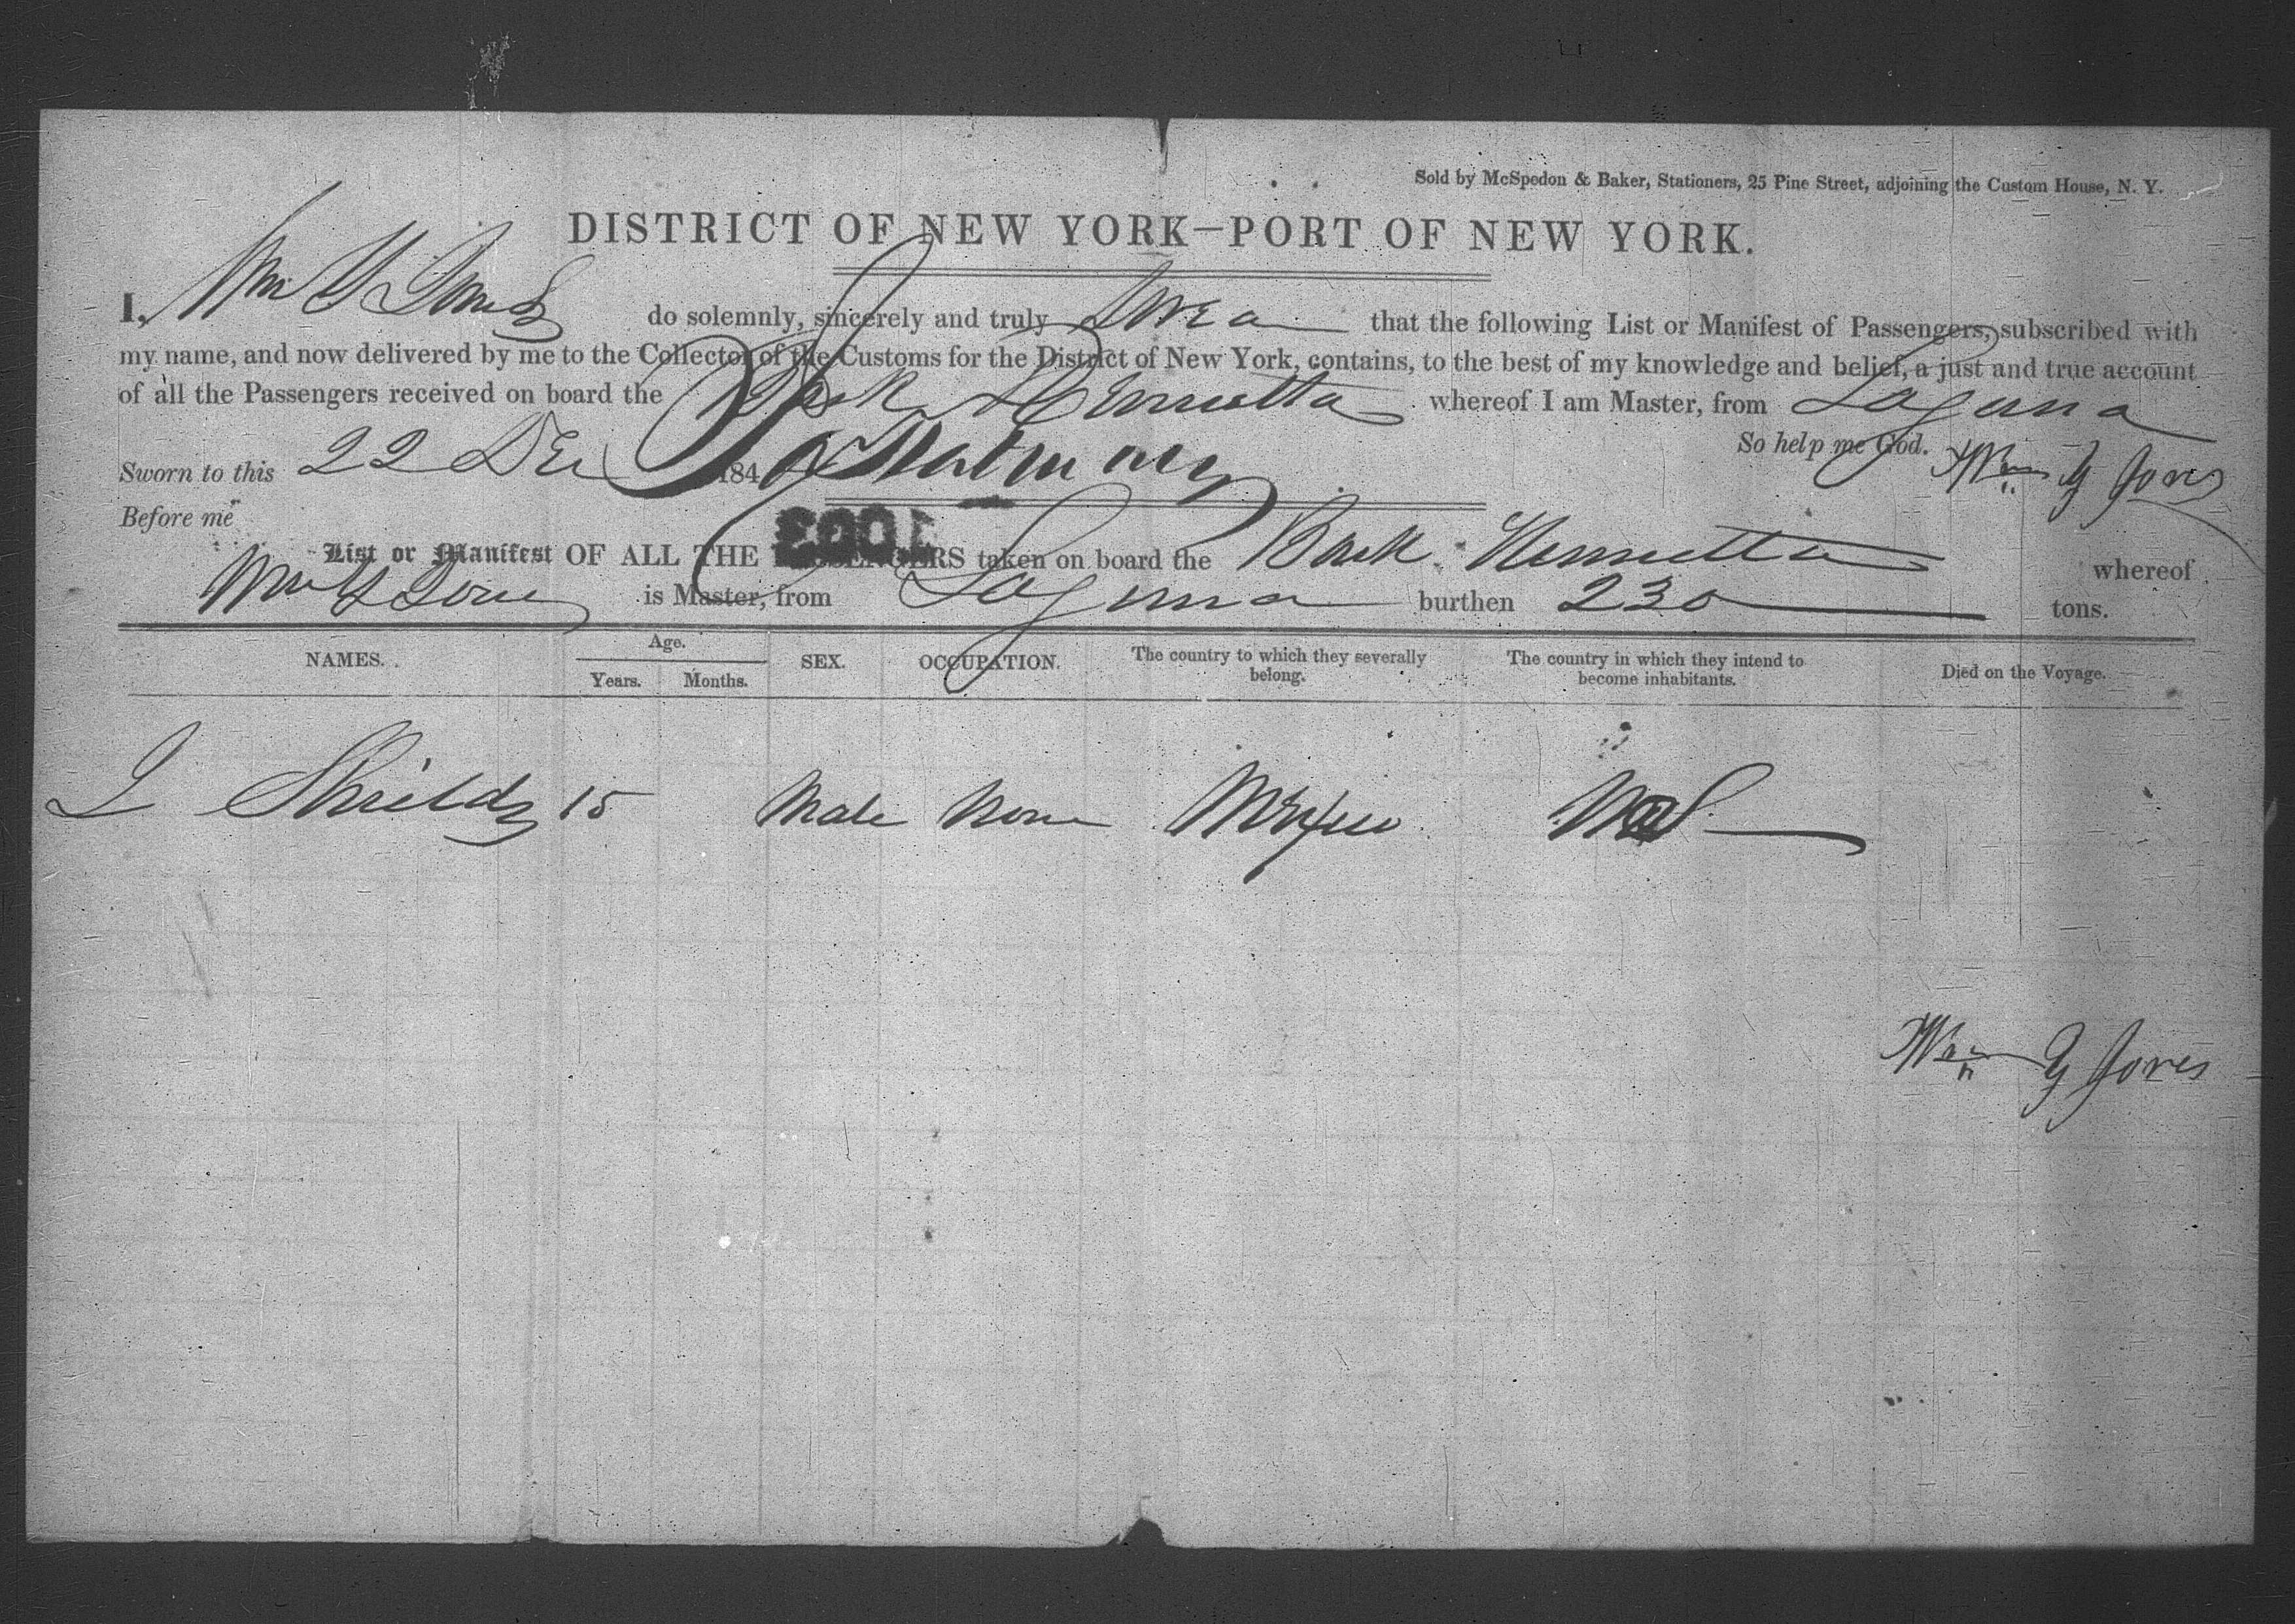 Sold by McSpedon & Baker, Stationers, 25 Pine Street, adjoining the Custom House, N. Y.
DISTRICT OF NEW YORK—PORT OF NEW YORK.
I, Wm Y Jones do solemnly, sincerely and truly Swea that the following List or Manifest of Passengers, subscribed with
my name, and now delivered by me to the Collector of the Customs for the District of New York, contains, to the best of my knowledge and belief, a just and true account
of all the Passengers received on board the Bark Henrietta whereof I am Master, from Laguna
So help me God. Wm Y Jones
Sworn to this 22 Dec 184
Before me
1003
List or Manifest OF ALL THE PASSENGERS taken on board the Bark Henrietta whereof
Wm Y Jones is Master, from Laguna burthen 230 tons.
NAMES. Age. Years. Months. SEX. OCCUPATION. The country to which they severally belong. The country in which they intend to become inhabitants. Died on the Voyage.
J Shields 15 Male None Mexico
Wm Y Jones